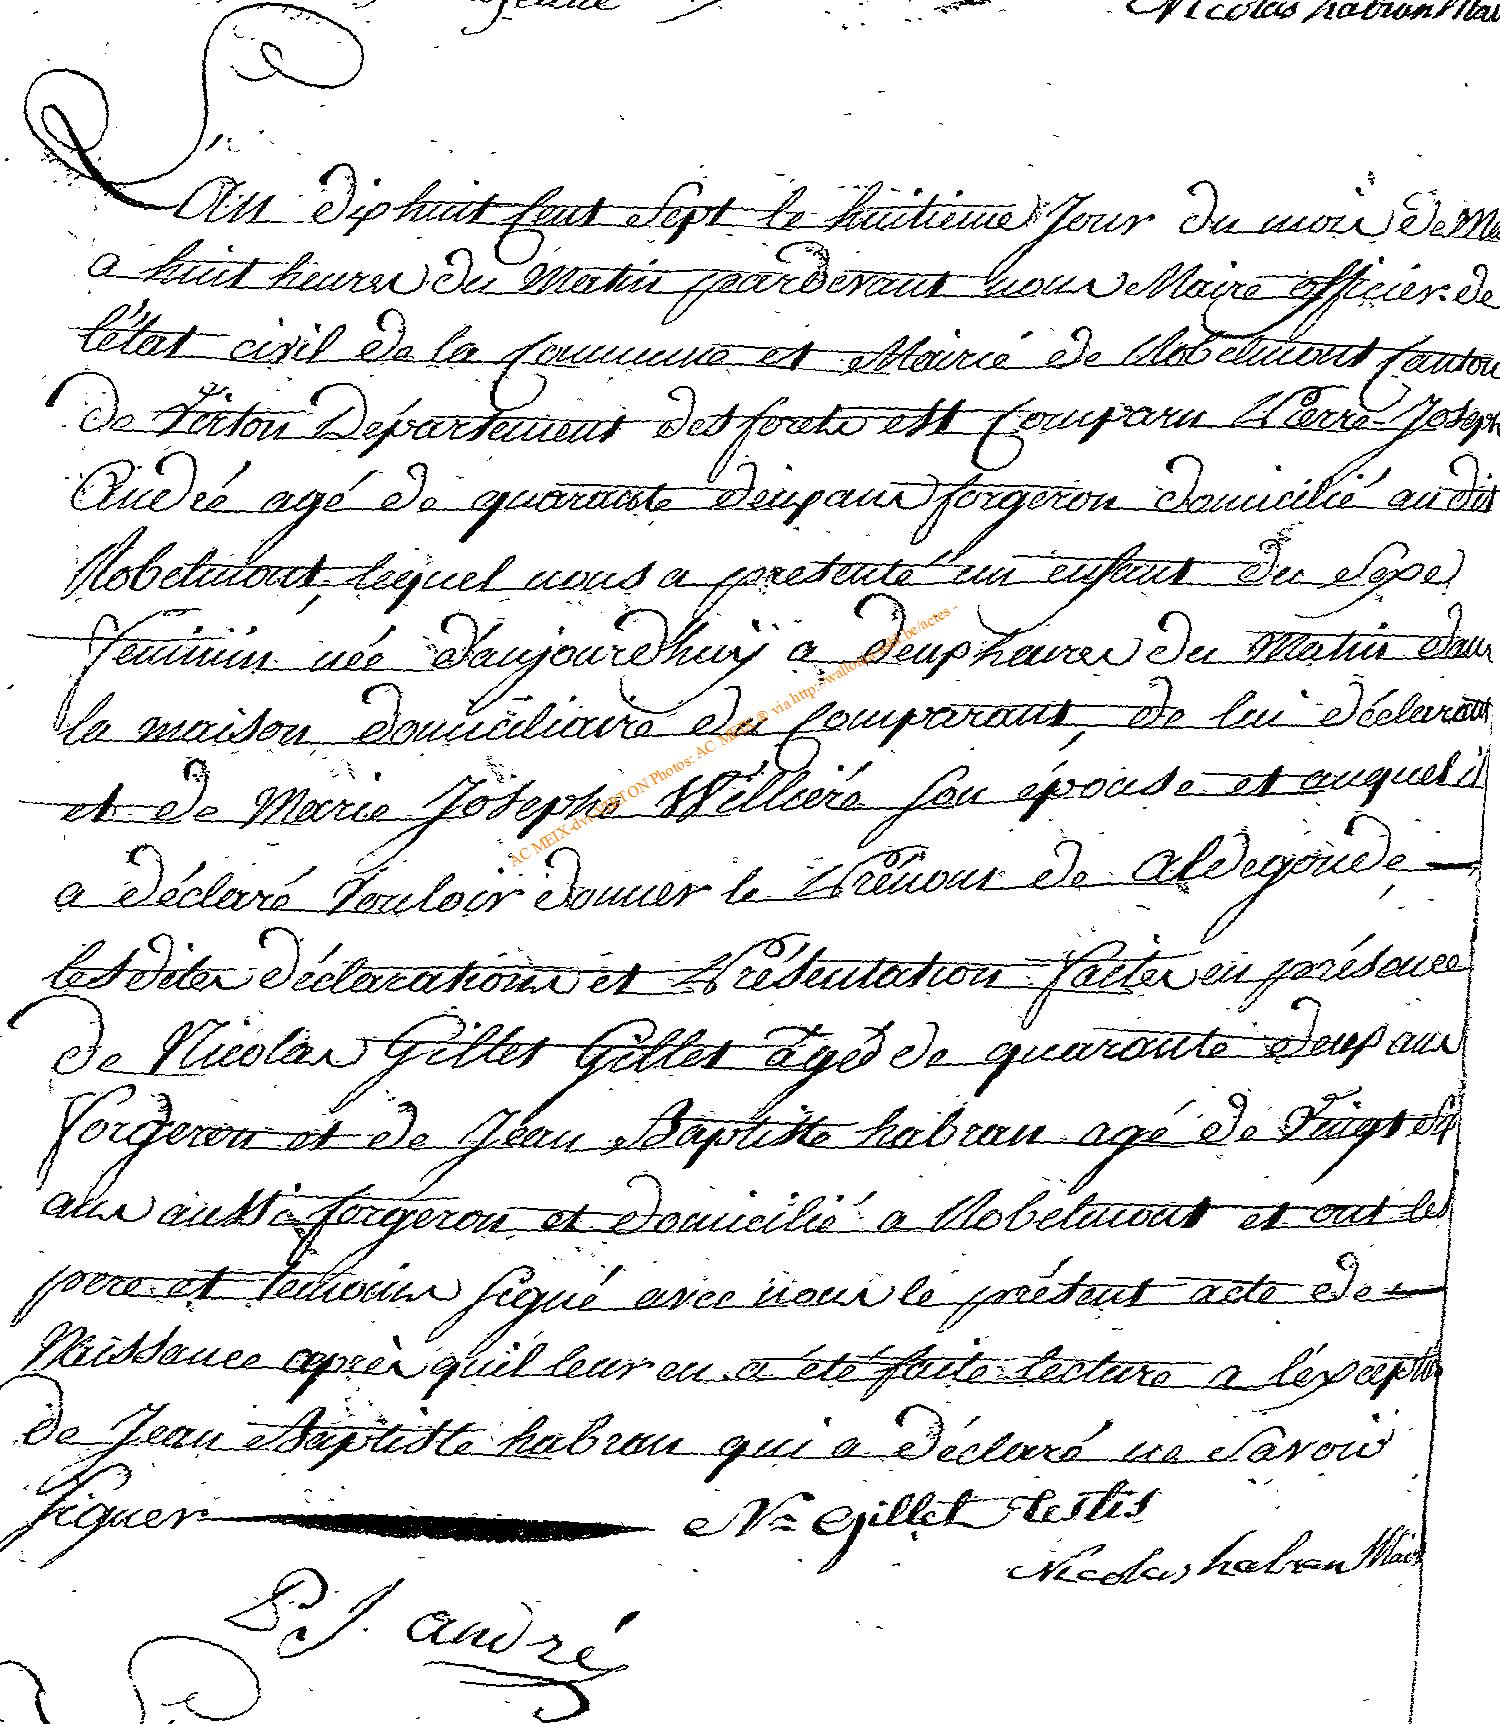 Nicolas habran Mai
L'An dix huit Cent Sept le huitieme Jour du mois de
a huit heures du Matin pardevant nous Maire officier de
l'état civil de la Commune et Mairie de Robelmont Canton
de Virton Département des forets est Comparu Pierre-Joseph
André agé de quarante deux ans forgeron domicilié au dit
Robelmont, lequel nous a presenté un enfant du Sexe
feminin née d'aujourd'huy a deux heures du Matin dans
la maison domiciliaire du Comparant, de lui déclarant
et de Marie Josephe Williéré Son épouse et auquel il
a déclaré Vouloir donner le Prénom de Aldegonde
lesdites déclarations et Présentation faites en présence
de Nicolas Gilles Gilles agé de quarante deux ans
forgeron et de Jean Baptiste habran agé de Vingt
ans aussi forgeron et domicilié a Robelmont et ont les
pere et temoins Signé avec nous le présent acte de
Naissance après qu'il leur en a été faite lecture a l'exception
de Jean Baptiste habran qui a déclaré ne Savoir
Signer N= Gillet testis
Nicolas habran Mair
P J. andré
AC MEIX-dvt-VIRTON Photos: AC MEIX® via http://